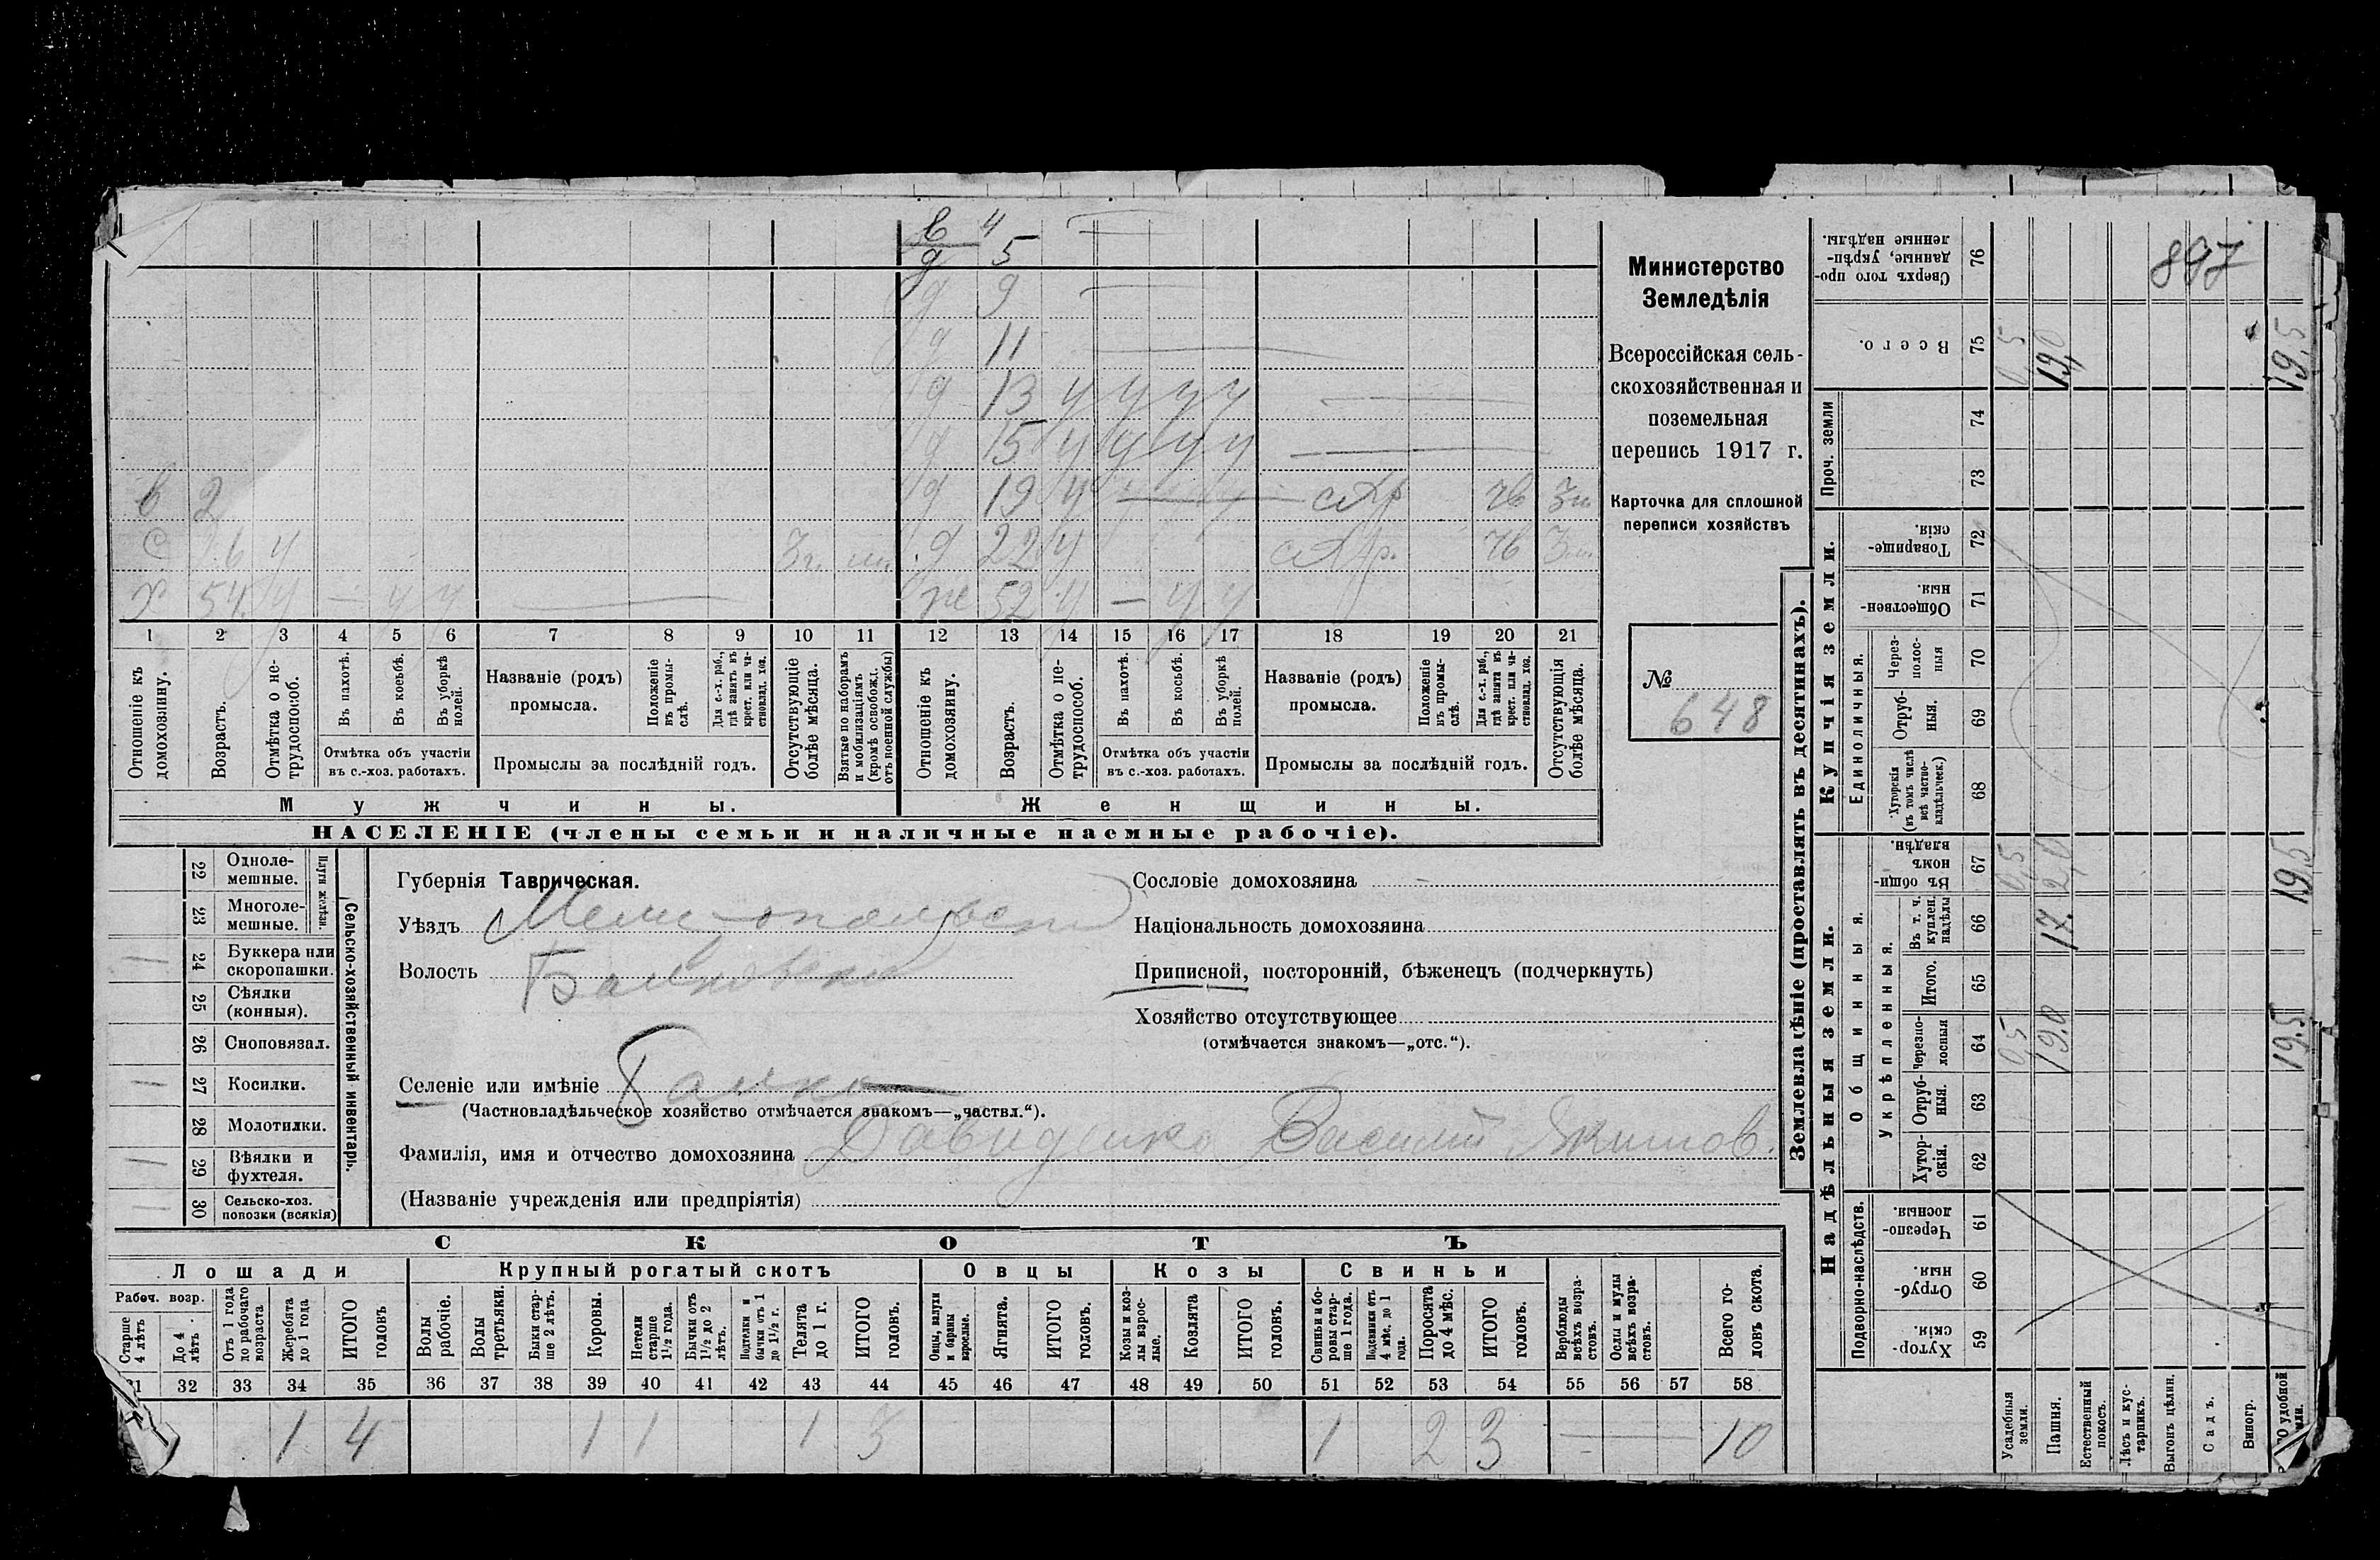 в 4
д 5
д 9
д 11
д 13 у у у у
д 15 у у у у
в 2 д 19 у
с у 3 г. д 22 у
х 54 у — у у ж 52 у — у у
1 2 3 4 5 6 7 8 9 10 11 12 13 14 15 16 17 18 19 20 21
Отношеніе къ домохозяину.
Возрастъ.
Отмѣтка о нетрудоспособ.
Въ пахотѣ.
Въ косьбѣ.
Въ уборкѣ полей.
Отмѣтка объ участіи въ с.-хоз. работахъ.
Названіе (родъ) промысла.
Положеніе въ промыслѣ.
Для с.-х. раб., гдѣ занятъ въ крест. или частновлад. хоз.
Промыслы за послѣдній годъ.
Отсутствующіе болѣе мѣсяца.
Взятые по наборамъ и мобилизаціямъ (кромѣ освобожд. отъ военной службы)
Отношеніе къ домохозяину.
Возрастъ.
Отмѣтка о нетрудоспособ.
Въ пахотѣ.
Въ косьбѣ.
Въ уборкѣ полей.
Отмѣтка объ участіи въ с.-хоз. работахъ.
Названіе (родъ) промысла.
Положеніе въ промыслѣ.
Для с.-х. раб., гдѣ занята въ крест. или частновлад. хоз.
Промыслы за послѣдній годъ.
Отсутствующія болѣе мѣсяца.
Мужчины.
Женщины.
НАСЕЛЕНІЕ (члены семьи и наличные наемные рабочіе).
Министерство
Земледѣлія
Всероссійская сель-
скохозяйственная и
поземельная
перепись 1917 г.
Карточка для сплошной
переписи хозяйствъ
№
648
22 Одноле-мешные.
23 Многоле-мешные.
Плуги желѣзн.
24 Буккера или скоропашки.
25 Сѣялки (конныя).
26 Сноповязал.
27 Косилки.
28 Молотилки.
29 Вѣялки и фухтеля.
30 Сельско-хоз. повозки (всякія)
Сельско-хозяйственный инвентарь.
Губернія Таврическая.
Уѣздъ Мелитопольск
Волость Балковская
Селеніе или имѣніе Балка
(Частновладѣльческое хозяйство отмѣчается знакомъ—„частвл.“).
Фамилія, имя и отчество домохозяина Давиденко Василий Якимов.
(Названіе учрежденія или предпріятія)
Сословіе домохозяина
Національность домохозяина
Приписной, посторонній, бѣженецъ (подчеркнуть)
Хозяйство отсутствующее
(отмѣчается знакомъ—„отс.“).
СКОТЪ
Лошади
Крупный рогатый скотъ
Овцы
Козы
Свиньи
Рабоч. возр.
Старше 4 лѣтъ
До 4 лѣтъ
Отъ 1 года до рабочаго возраста
Жеребята до 1 года
ИТОГО головъ
Волы рабочіе.
Волы третьяки.
Быки старше 2 лѣтъ.
Коровы.
Нетели старше 1½ года.
Бычки отъ 1½ до 2 лѣтъ.
Подтелки и бычки отъ 1 до 1½ г.
Телята до 1 г.
ИТОГО головъ.
Овцы, валухи и бараны взрослые.
Ягнята.
ИТОГО головъ.
Козы и козлы взрослые.
Козлята
ИТОГО головъ.
Свиньи и боровы старше 1 года.
Подсвинки отъ 4 мѣс. до 1 года.
Поросята до 4 мѣс.
ИТОГО головъ.
Верблюды всѣхъ возрастовъ.
Ослы и мулы всѣхъ возрастовъ.
Всего головъ скота.
31 32 33 34 35 36 37 38 39 40 41 42 43 44 45 46 47 48 49 50 51 52 53 54 55 56 57 58
1 4 1 1 1 3 1 2 3 10
Землевладѣніе (проставлять въ десятинахъ).
Сверхъ того проданные, укрѣпленные надѣлы. 76 897
Всего. 75 0,5 19,0 19,5
Проч. земли
74
73
Купчія земли.
Товарищескія. 72
Общественныя. 71
Единоличныя.
Черезполосныя 70
Отрубныя. 69
Хуторскія (въ томъ числѣ всѣ частновладѣльческ.) 68
Надѣльныя земли.
Общинныя.
Въ общинномъ владѣн. 67 0,5 2,0 19,5
Укрѣпленныя.
Въ т. ч. куплен. надѣлы 66 17.
Итого. 65
Черезполосныя 64 0,5 19,0 19,5
Отрубныя. 63
Хуторскія. 62
Подворно-наслѣдств.
Черезполосныя. 61
Отрубныя. 60
Хуторскія. 59
Усадебныя земли.
Пашня.
Естественный покосъ.
Лѣсъ и кустарникъ.
Выгонъ цѣлин.
Садъ.
Виногр.
удобной